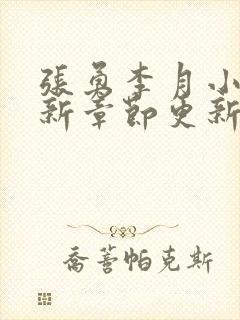 張勇李月小
新章節更新
喬薈帕克斯